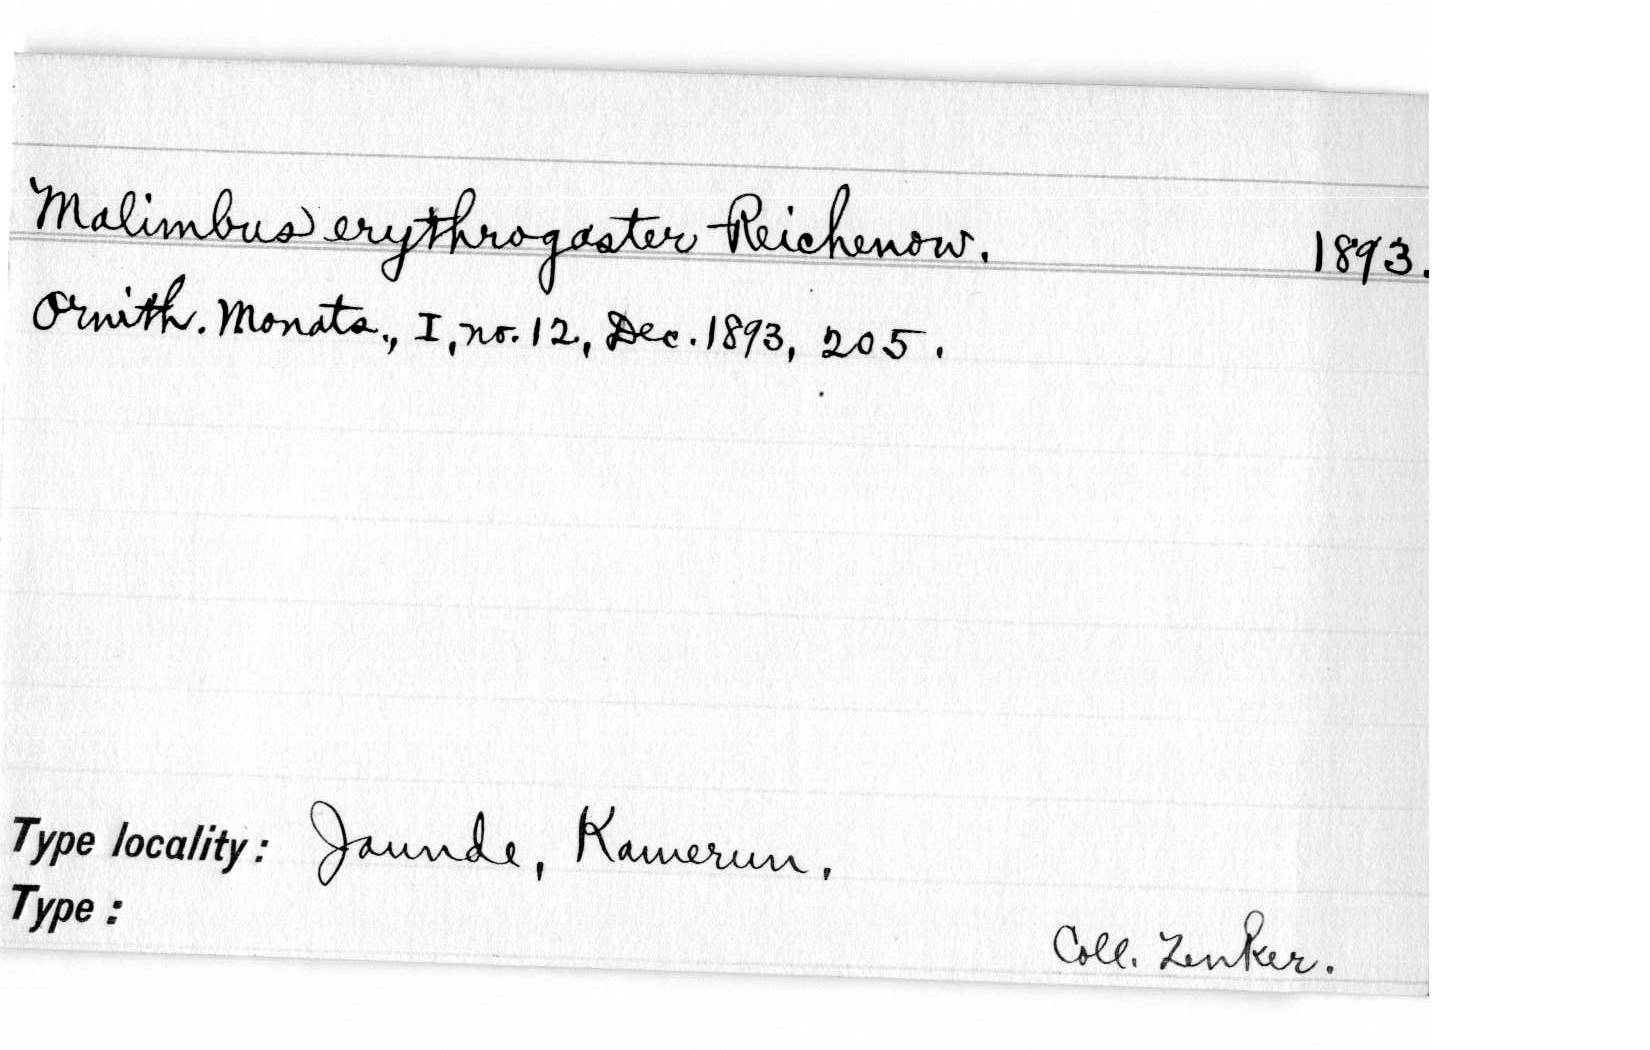 Malimbus erythrogaster Reichenow. 1893.
Ornith. Monats., I, no. 12, Dec. 1893, 205.
Type locality: Jaunde, Kamerun.
Type:
Coll. Zenker.